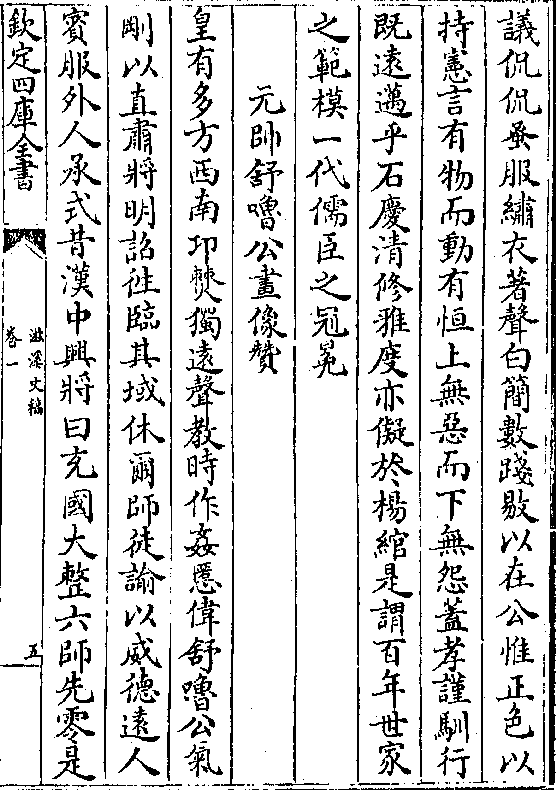 議侃侃蚤服繡衣著聲白簡數踐敭以在公惟正色以
持憲言有物而動有恒上無惡而下無怨蓋孝謹馴行
既遠邁乎石慶清修雅度亦儗於楊綰是謂百年世家
之範模一代儒臣之冠冕
元帥舒嚕公畫像贊
皇有多方西南卭僰獨遠聲教時作姦慝偉舒嚕公氣
剛以直肅將明詔徃臨其域休爾師徒諭以威德遠人
賓服外人承式昔漢中興將曰充國大整六師先零是
欽定四庫全書
滋溪文稿
卷一
五